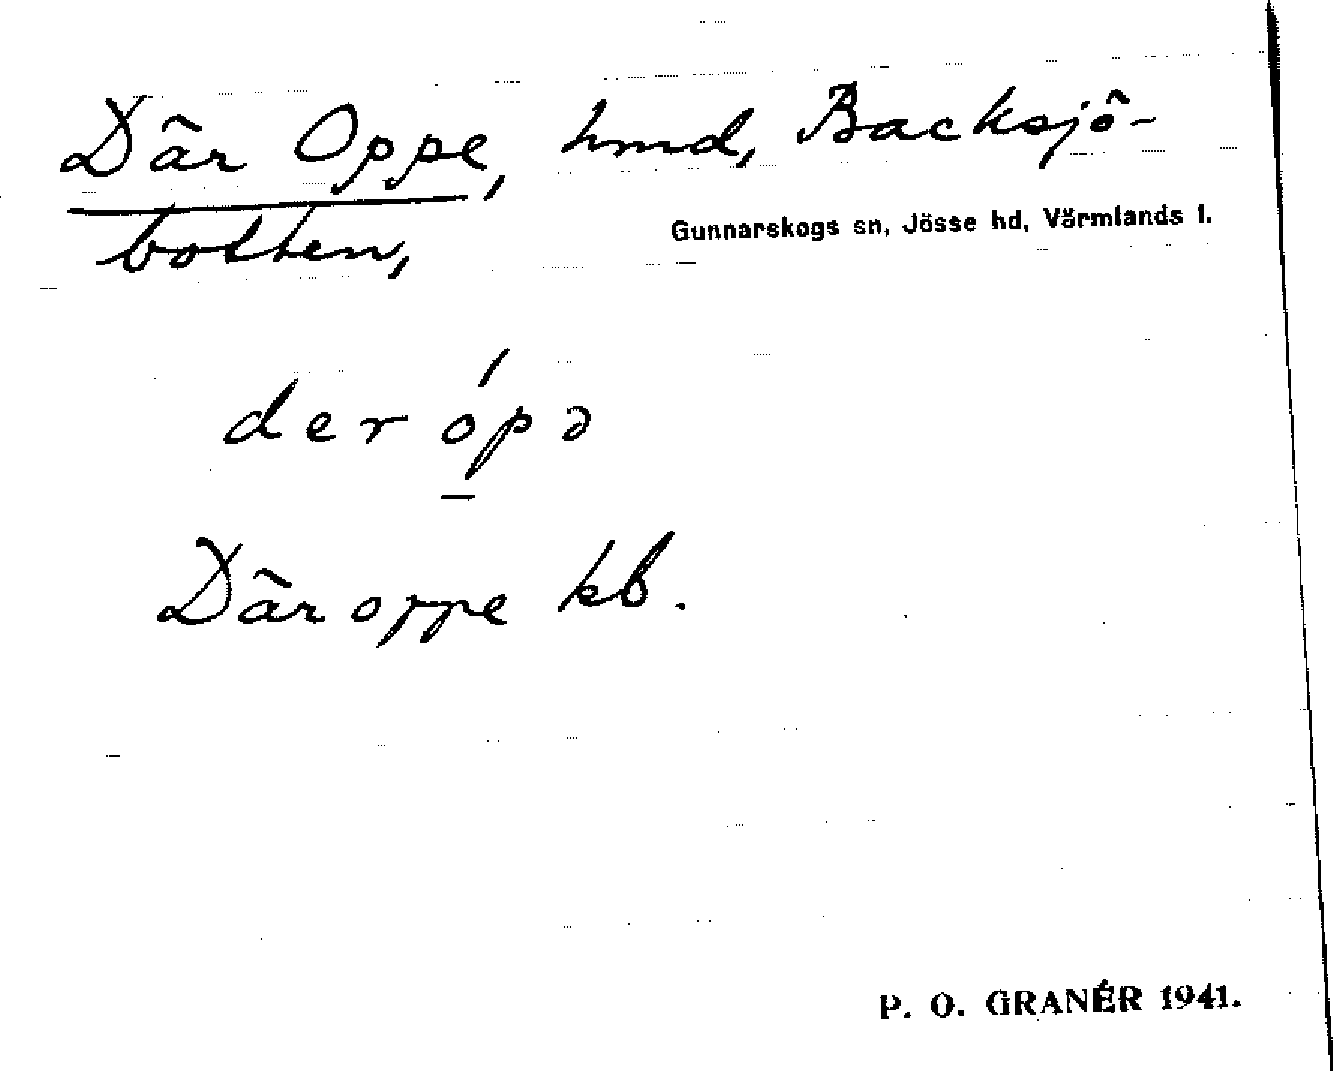 Där Oppe, hmd, Backsjö-
botten,
Gunnarskogs sn, Jösse hd, Värmlands l.
der ópə
Där oppe kb.
P. O. GRANÉR 1941.